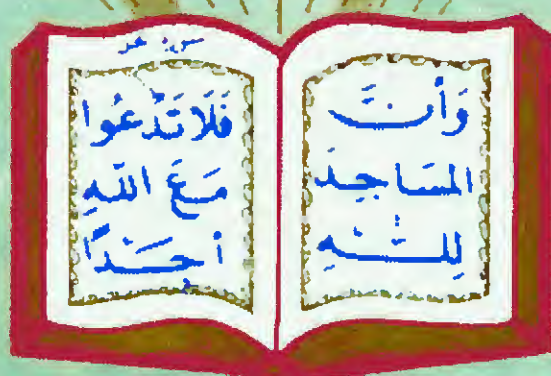 وَأنَّ
المَسَاجِدَ
لِلَّـهِ
فَلَا تَدْعُوا
مَعَ اللَّهِ
أحَدًا